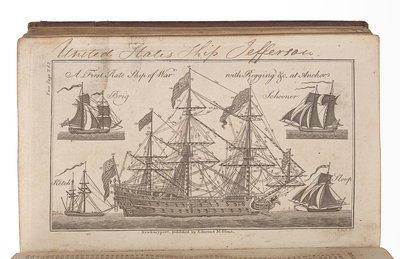 United States Ship Jefferson
A First Rate Ship of War with Rigging &c. at Anchor
Brig
Schooner
Ketch
Sloop
Newburyport, Published by Edmund M. Blunt.